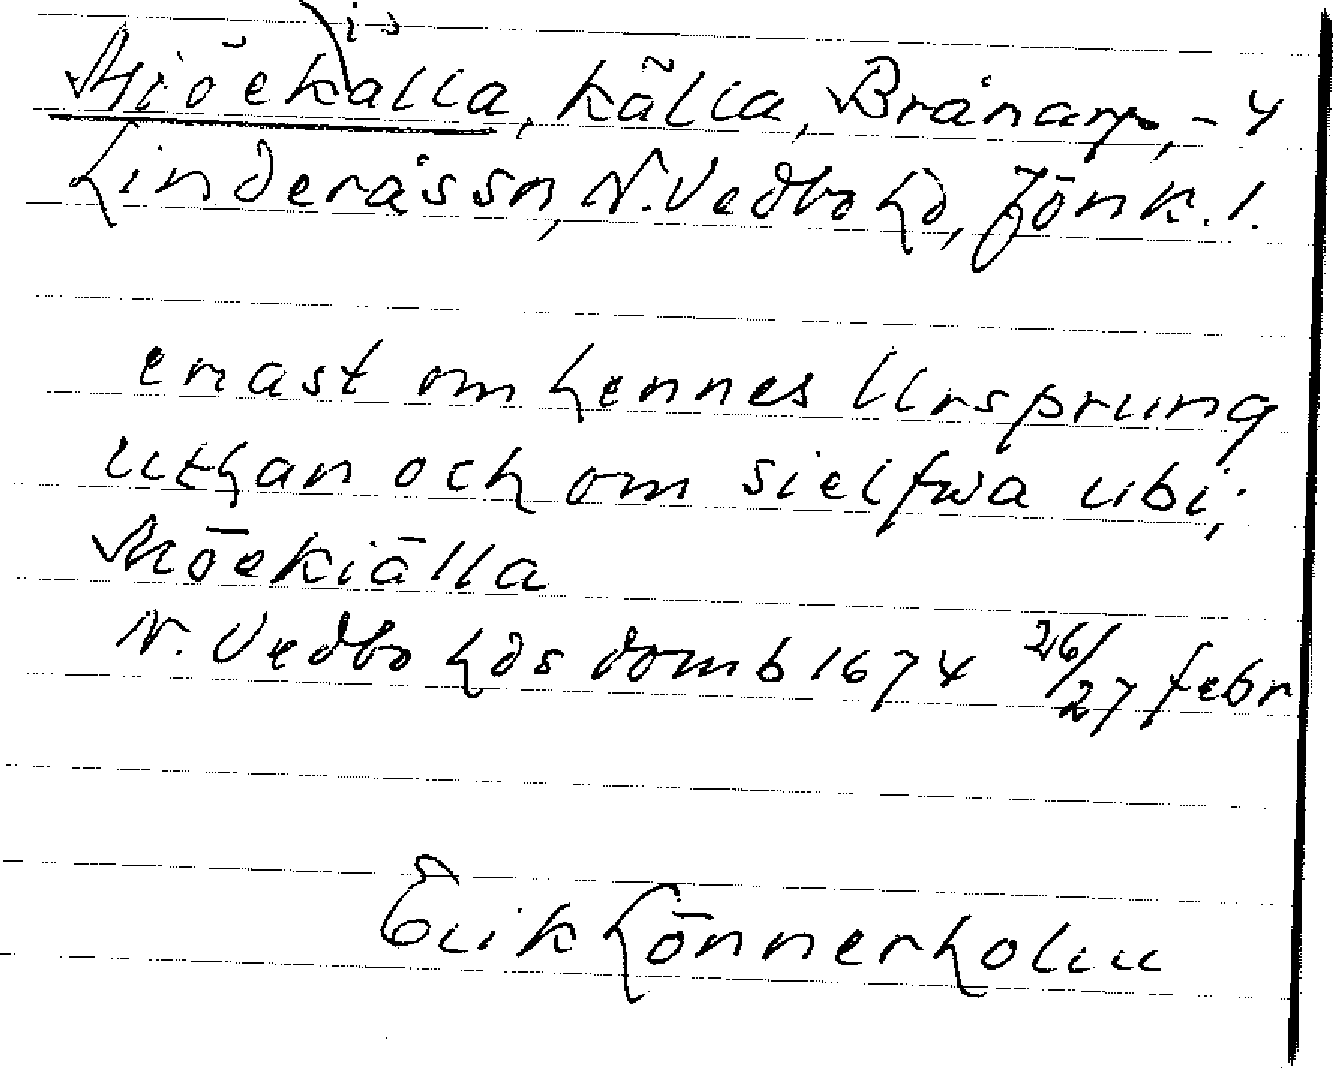 Miöekalla, källa, Brånarp, - 4
Linderås sn, N. Vedbo hd, Jönk. l.
enast om hennes Ursprung
uthan och om sielfwa ubi;
Möekiälla
N. Vedbo hds domb 1674 26/27 febr
Erik Lönnerholm